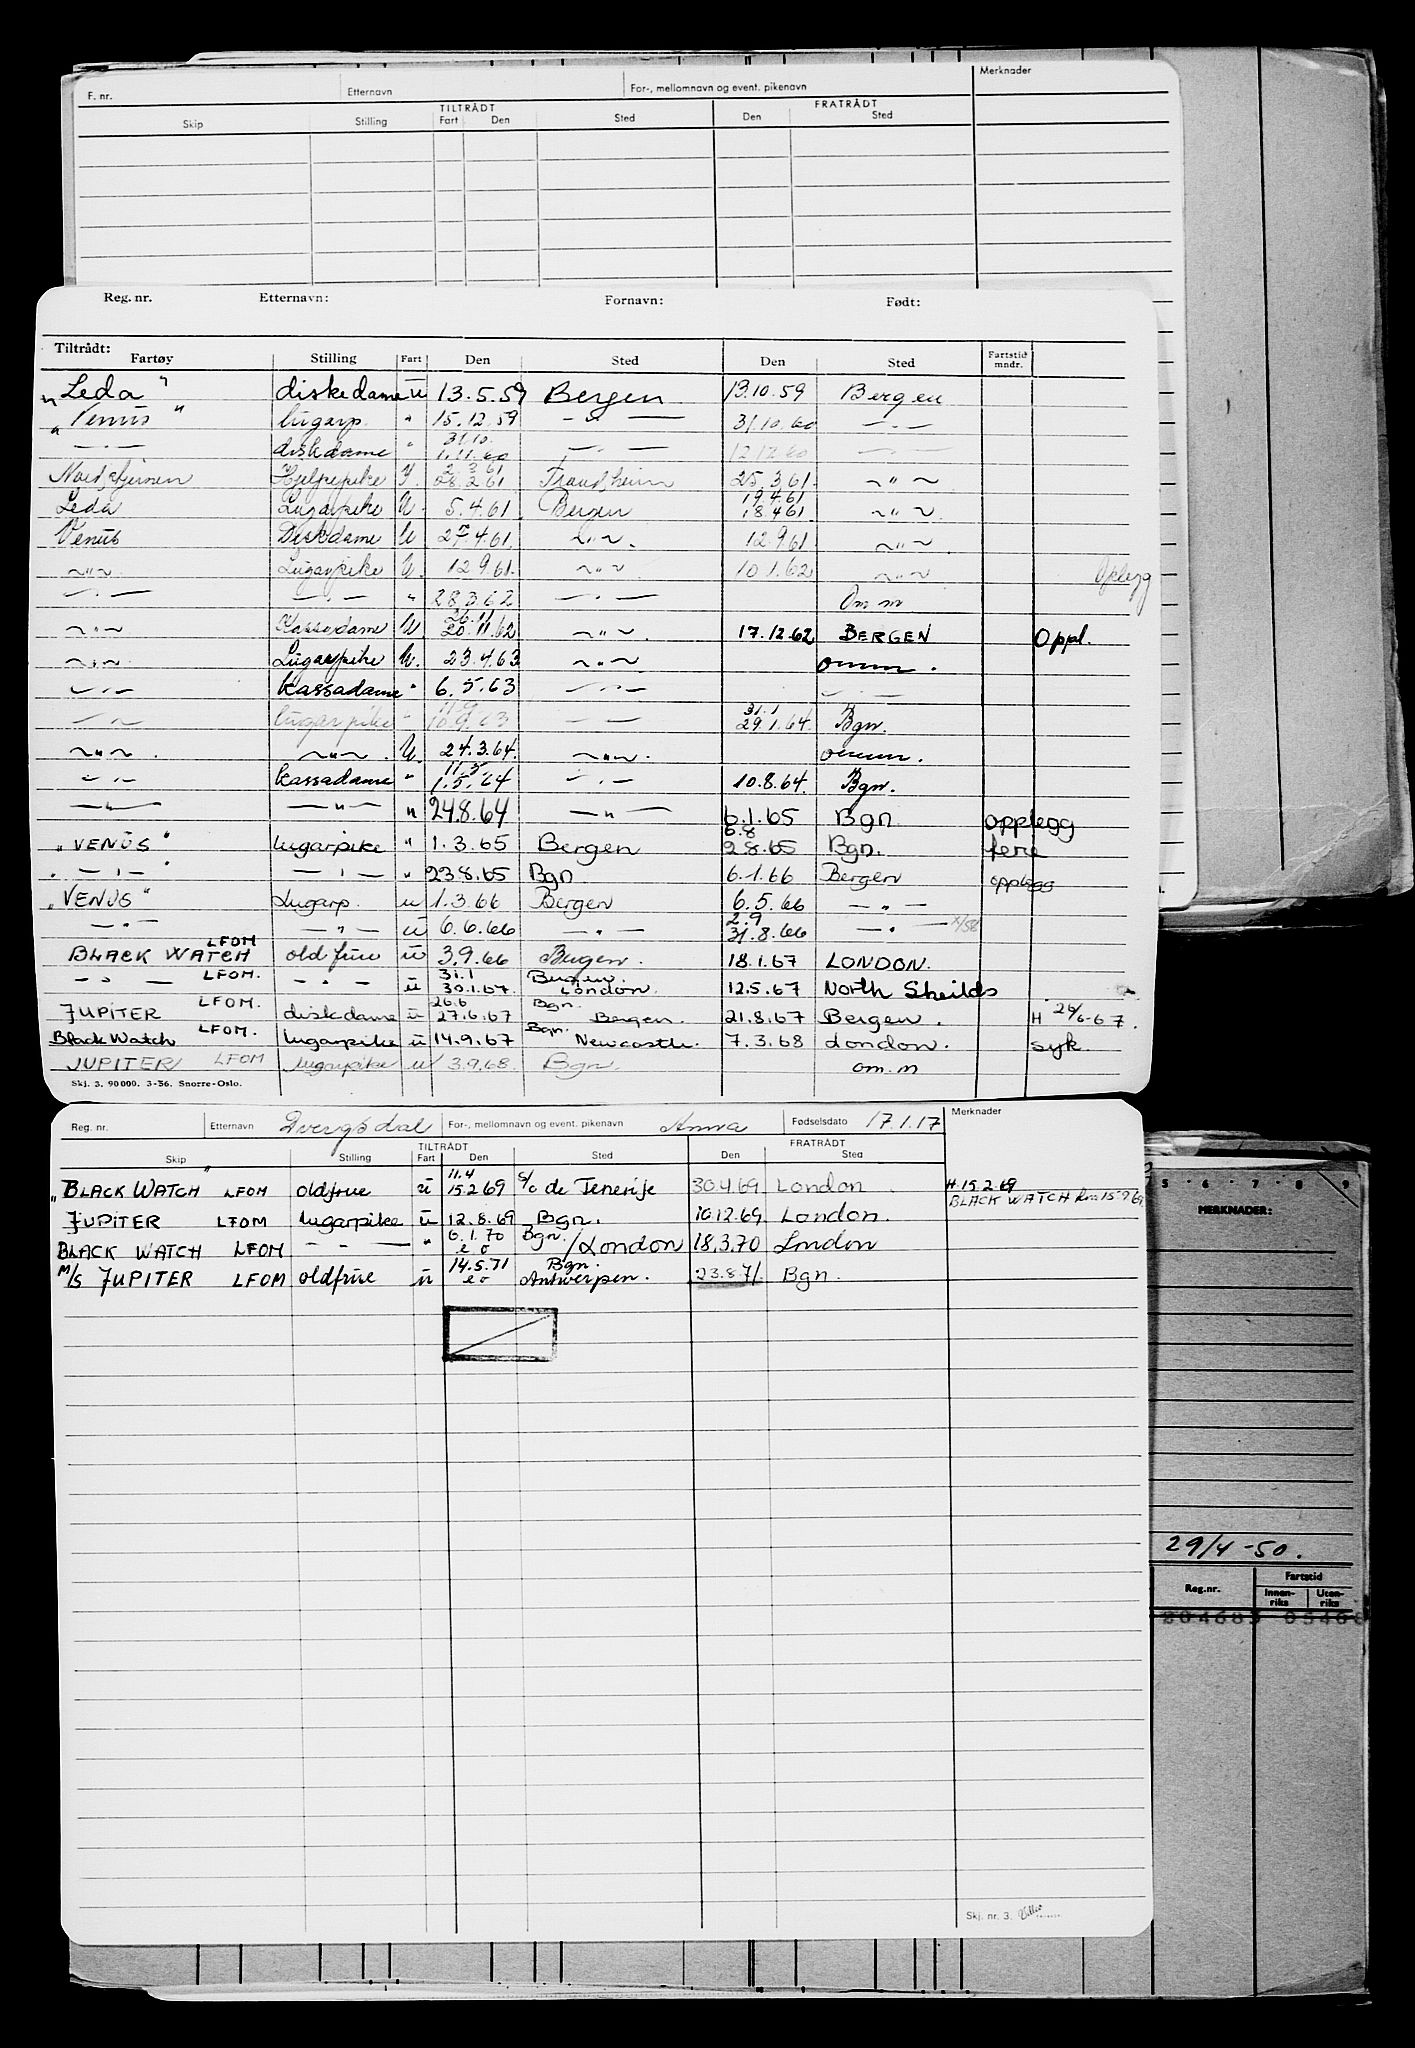 Merknader
F. nr. Etternavn For-, mellomnavn og event. pikenavn
TILTRÅDT FRATRÅDT
Skip Stilling Fart Den Sted Den Sted
Reg. nr. Etternavn: Fornavn: Født:
Tiltrådt:
Fartøy Stilling Fart Den Sted Den Sted Fartstid mndr.
"Leda" diskedame ū 13.5.59 Bergen 13.10.59 Bergen
"Venus" lugarp. " 15.12.59 — " — 31.10.60 — " —
31.10.
— " — diskedame " 1.11.60 — " — 12.12.60 — " —
2.3.61
Nordstjernen Hjelpepike I. 28.2.61 Trondheim 25.3.61 ~ " ~
19.4.61
Leda Lugarpike U. 5.4.61 Bergen 18.4.61 ~ " ~
Venus Diskdame U 27.4.61. ~ " ~. 12.9.61 ~ " ~
~ " ~ Lugarpike U. 12.9.61. ~ " ~ 10.1.62 ~ " ~ Oplegg
— " — — " — " 28.3.62 — " — Om m
26.11
~ " ~ Kassedame U. 20.11.62 ~ " ~. 17.12.62 BERGEN Oppl.
~ " ~ Lugarpike U. 23.4.63 ~ " ~ omm.
— " — kassadame " 6.5.63 — " — — " —
11.9 31.1
— " — lugarpike " 10.9.63 — " — 29.1.64. Bgn.
~ " ~. ~ " ~. U. 24.3.64. ~ " ~. omm.
11.5
— " — kassadame " 1.5.64 — " — 10.8.64. Bgn.
— " — — " — " 24.8.64 — " — 6.1.65 Bgn opplegg
6.8
"VENUS" lugarpike " 1.3.65 Bergen 2.8.65 Bgn. ferie
" — " — " — " — " 23.8.65 Bgn 6.1.66 Bergen opplegg
"VENUS" Lugarp. u 1.3.66 Bergen 6.5.66 — " —
2.9
— " — — " — ū 6.6.66 — " — 31.8.66 — " — x/56
LFOM
BLACK WATCH oldfrue ū 3.9.66 Bergen. 18.1.67 LONDON.
LFOM. 31.1 Bergen
— " — — " — ū 30.1.67. London. 12.5.67 North Sheilds
LFOM. 26.6 Bgn.
JUPITER diskdame ū 27.6.67 Bergen. 21.8.67 Bergen. H 26/6-67.
Black Watch LFOM. lugarpike ū 14.9.67 Bgn. Newcastle. 7.3.68 London. syk.
JUPITER LFOM lugarpike u 3.9.68 Bgn. om.m
Skj. 3. 90 000. 3-56. Snorre-Oslo.
Merknader
Reg. nr. Etternavn Dvergsdal For-, mellomnavn og event. pikenavn Anna Fødselsdato 17.1.17
TILTRÅDT FRATRÅDT
Skip Stilling Fart Den Sted Den Sted
11.4
"BLACK WATCH" LFOM oldfrue ū 15.2.69 S/C de Tenerife 30.4.69 London H. 15.2.69
BLACK WATCH
JUPITER LFOM lugarpike ū 12.8.69 Bgn. 10.12.69 London.
6.1.70 Bgn.
BLACK WATCH LFOM — " — " e o /London 18.3.70 London
14.5.71 Bgn.
M/S JUPITER LFOM oldfrue ū e o Antwerpen. 23.8.71 Bgn.
Skj. nr. 3.
5 · 6 · 7 · 8 · 9
MERKNADER:
29/4-50.
Reg.nr. Fartstid
Innen-riks Uten-riks